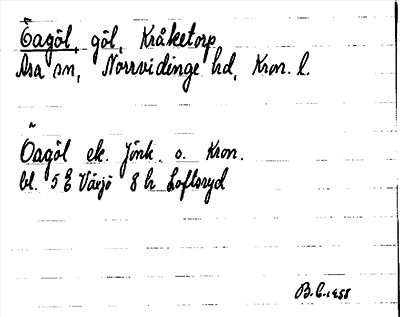 Öagöl, göl, Kråketorp
Asa sn, Norrvidinge hd, Kron. l.
Öagöl ek. Jönk. o. Kron.
bl. 5 E Växjö 8 h Loftsryd
B.E. 1955